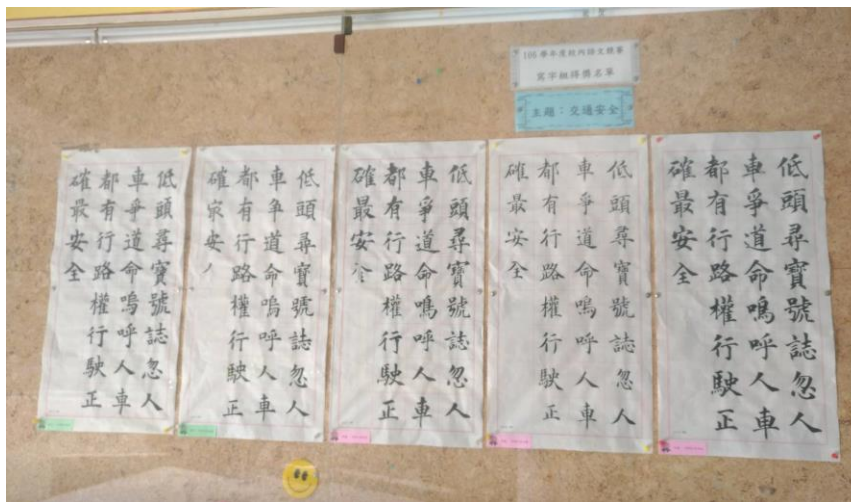 學年度校內語文競賽
寫字組得獎名單
主題:交通安全
低頭尋寶號誌忽人
車爭道命鳴呼人車
都有行路權行駛正
確最安全
低頭尋寶號誌忽人
車爭道命嗚呼人車
都有行路權行駛正
確最安全
低頭尋寶號誌忽人
車爭道命鳴呼人車
都有行路權行駛正
確最安全
低頭尋寶號誌忽人
車爭道命嗚呼人車
都有行路權行駛正
確最安
低頭尋寶號誌忽人
車爭道命嗚呼人車
都有行路權行駛正
確最安全